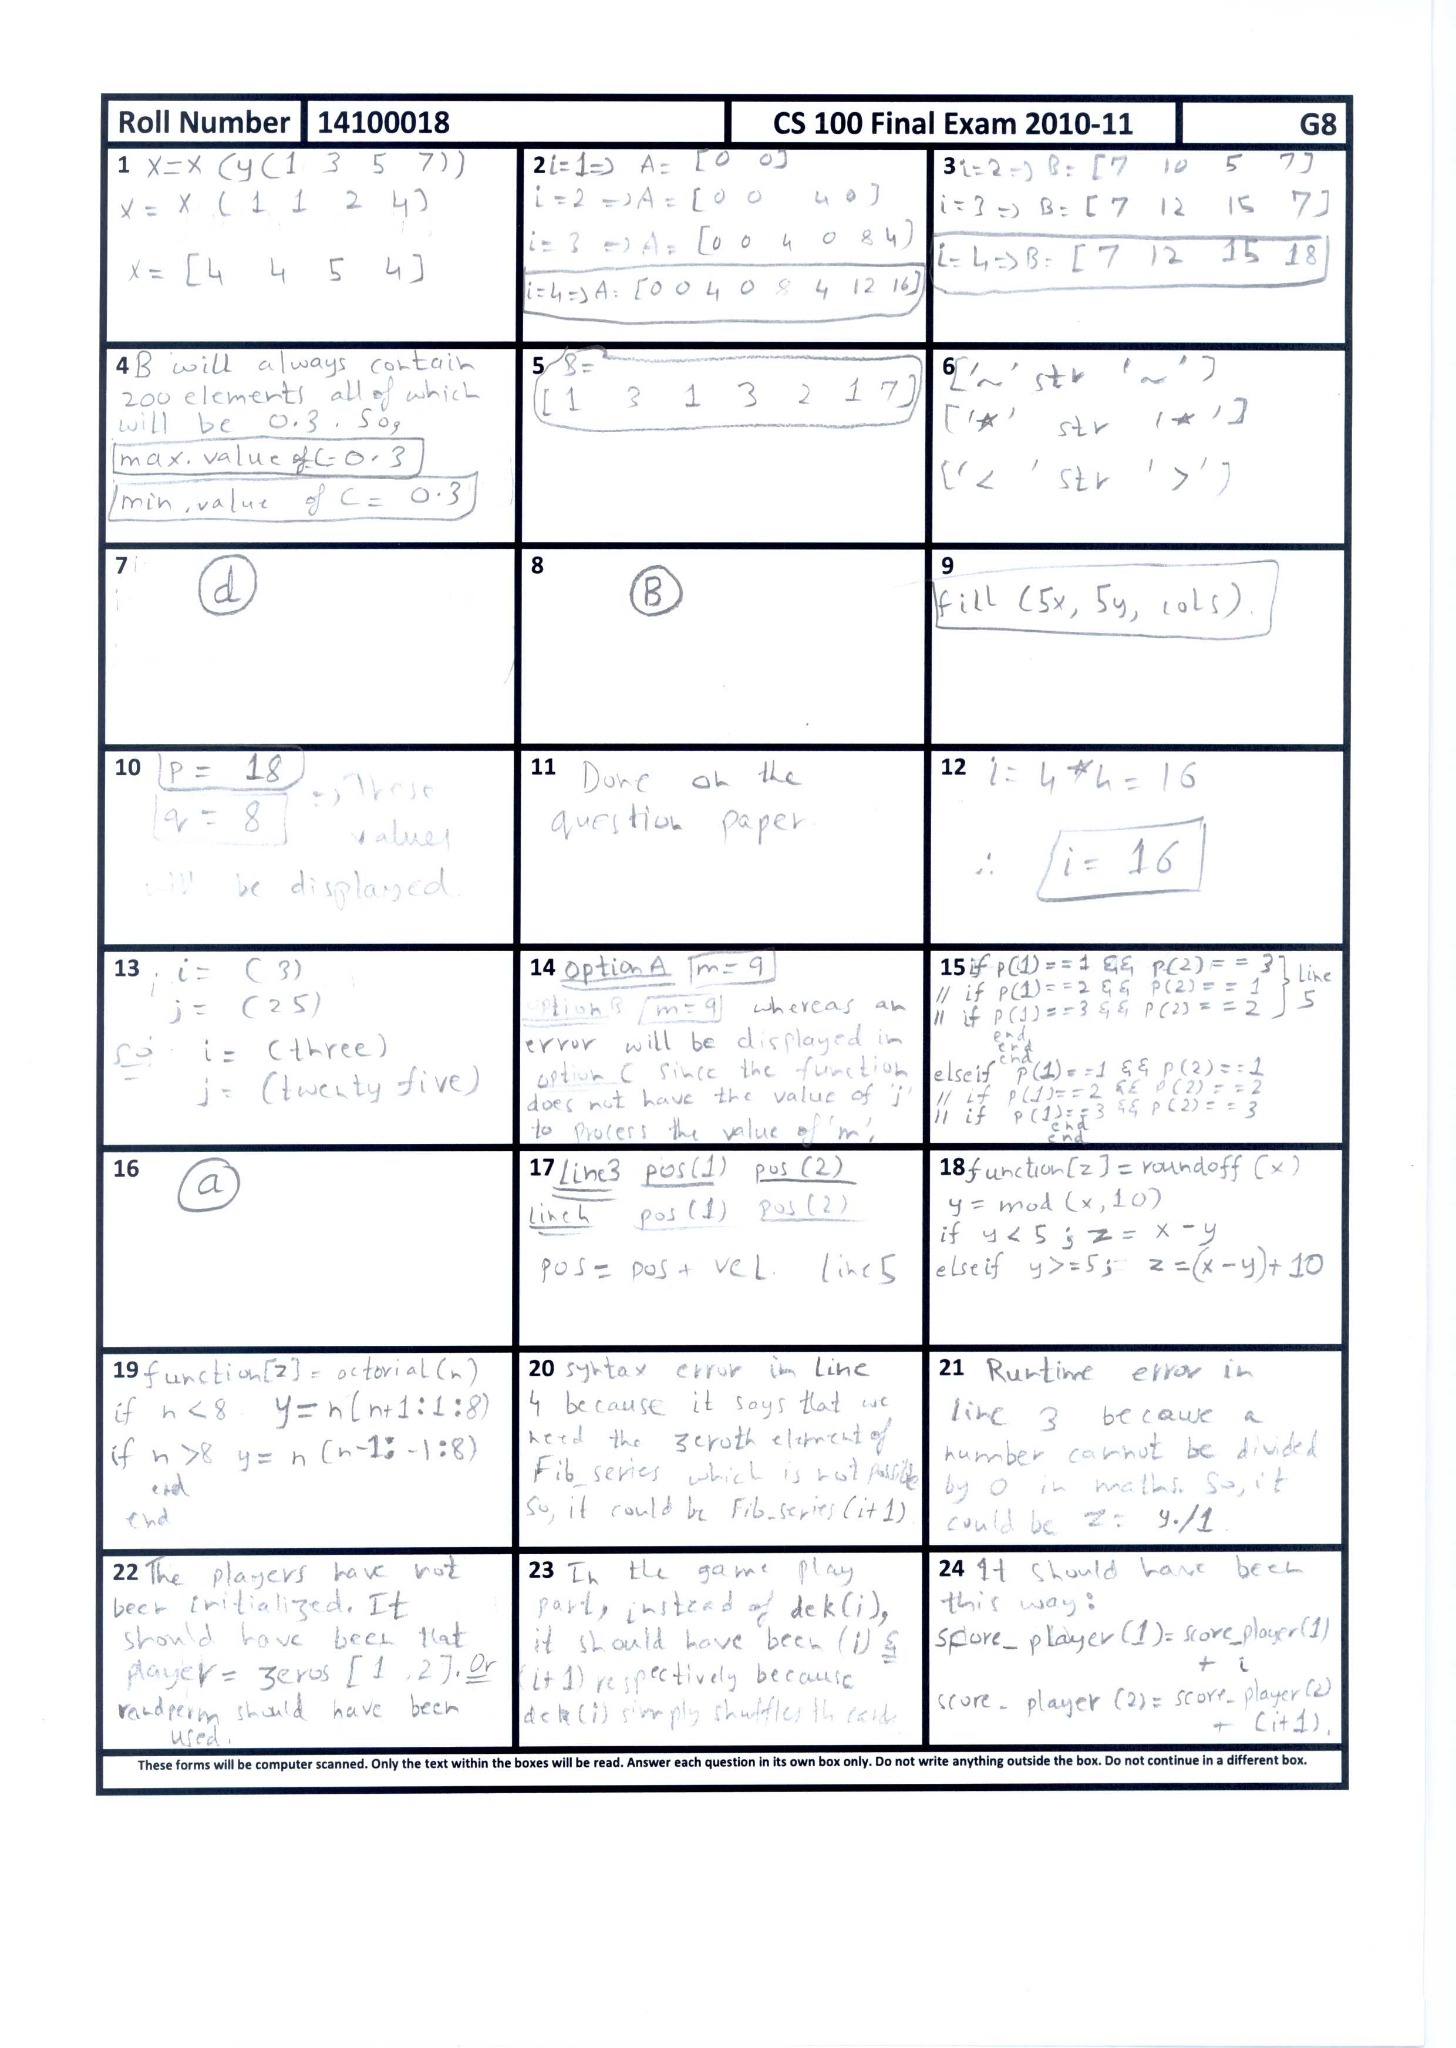 Roll Number 14100018 CS 100 Final Exam 2010-11 G8
1 x=x (y(1 3 5 7))
x = x ( 1 1 2 4)
x = [4 4 5 4]
2 i=1=> A= [0 0]
i=2 => A = [0 0 4 0]
i=3 => A= [0 0 4 0 8 4]
i=4=> A= [0 0 4 0 8 4 12 16]
3 i=2=> B= [7 10 5 7]
i=3 => B= [7 12 15 7]
i=4=> B= [7 12 15 18]
4 B will always contain
200 elements all of which
will be 0.3. So,
max. value of C= 0.3
min. value of C= 0.3
5 B=
[1 3 1 3 2 1 7]
6 ['~' str '~']
['*' str '*']
['<' str '>']
7 d
8 B
9
fill (5x, 5y, cols).
10 P= 18
q = 8 => These
values
will be displayed.
11 Done on the
question paper.
12 i= 4*4 = 16
∴ i= 16
13 i= (3)
j= (25)
so i= (three)
j= (twenty five)
14 option A m=9
option B m=9 whereas an
error will be displayed in
option C since the function
does not have the value of 'j'
to process the value of 'm'.
15 if p(1)==1 && p(2)==3 } Line
// if p(1)==2 && p(2)==1 } 5
// if p(1)==3 && p(2)==2
end
end
end
elseif p(1)==1 && p(2)==1
// if p(1)==2 && p(2)==2
// if p(1)==3 && p(2)==3
end
end
16 a
17 Line3 pos(1) pos(2)
Line4 pos(1) pos(2)
pos= pos + vel. line5
18 function[z] = roundoff (x)
y = mod (x,10)
if y<5 ; z = x-y
elseif y>=5; z =(x-y)+10
19 function[z] = octorial(n)
if n<8 y=n(n+1:1:8)
if n>8 y= n (n-1:-1:8)
end
end
20 syntax error in Line
4 because it says that we
need the zeroth element of
Fib_series which is not possible
So, it could be Fib_series (i+1)
21 Runtime error in
line 3 because a
number cannot be divided
by 0 in maths. So, it
could be z= y./1
22 The players have not
been initialized. It
should have been that
player = zeros [1,2]. Or
randperm should have been
used.
23 In the game play
part, instead of dek(i),
it should have been (i) &
(i+1) respectively because
dek(i) simply shuffles th card
24 It should have been
this way:
score_player(1)= score_player(1)
+ i
score_player(2)= score_player(2)
+ (i+1).
These forms will be computer scanned. Only the text within the boxes will be read. Answer each question in its own box only. Do not write anything outside the box. Do not continue in a different box.